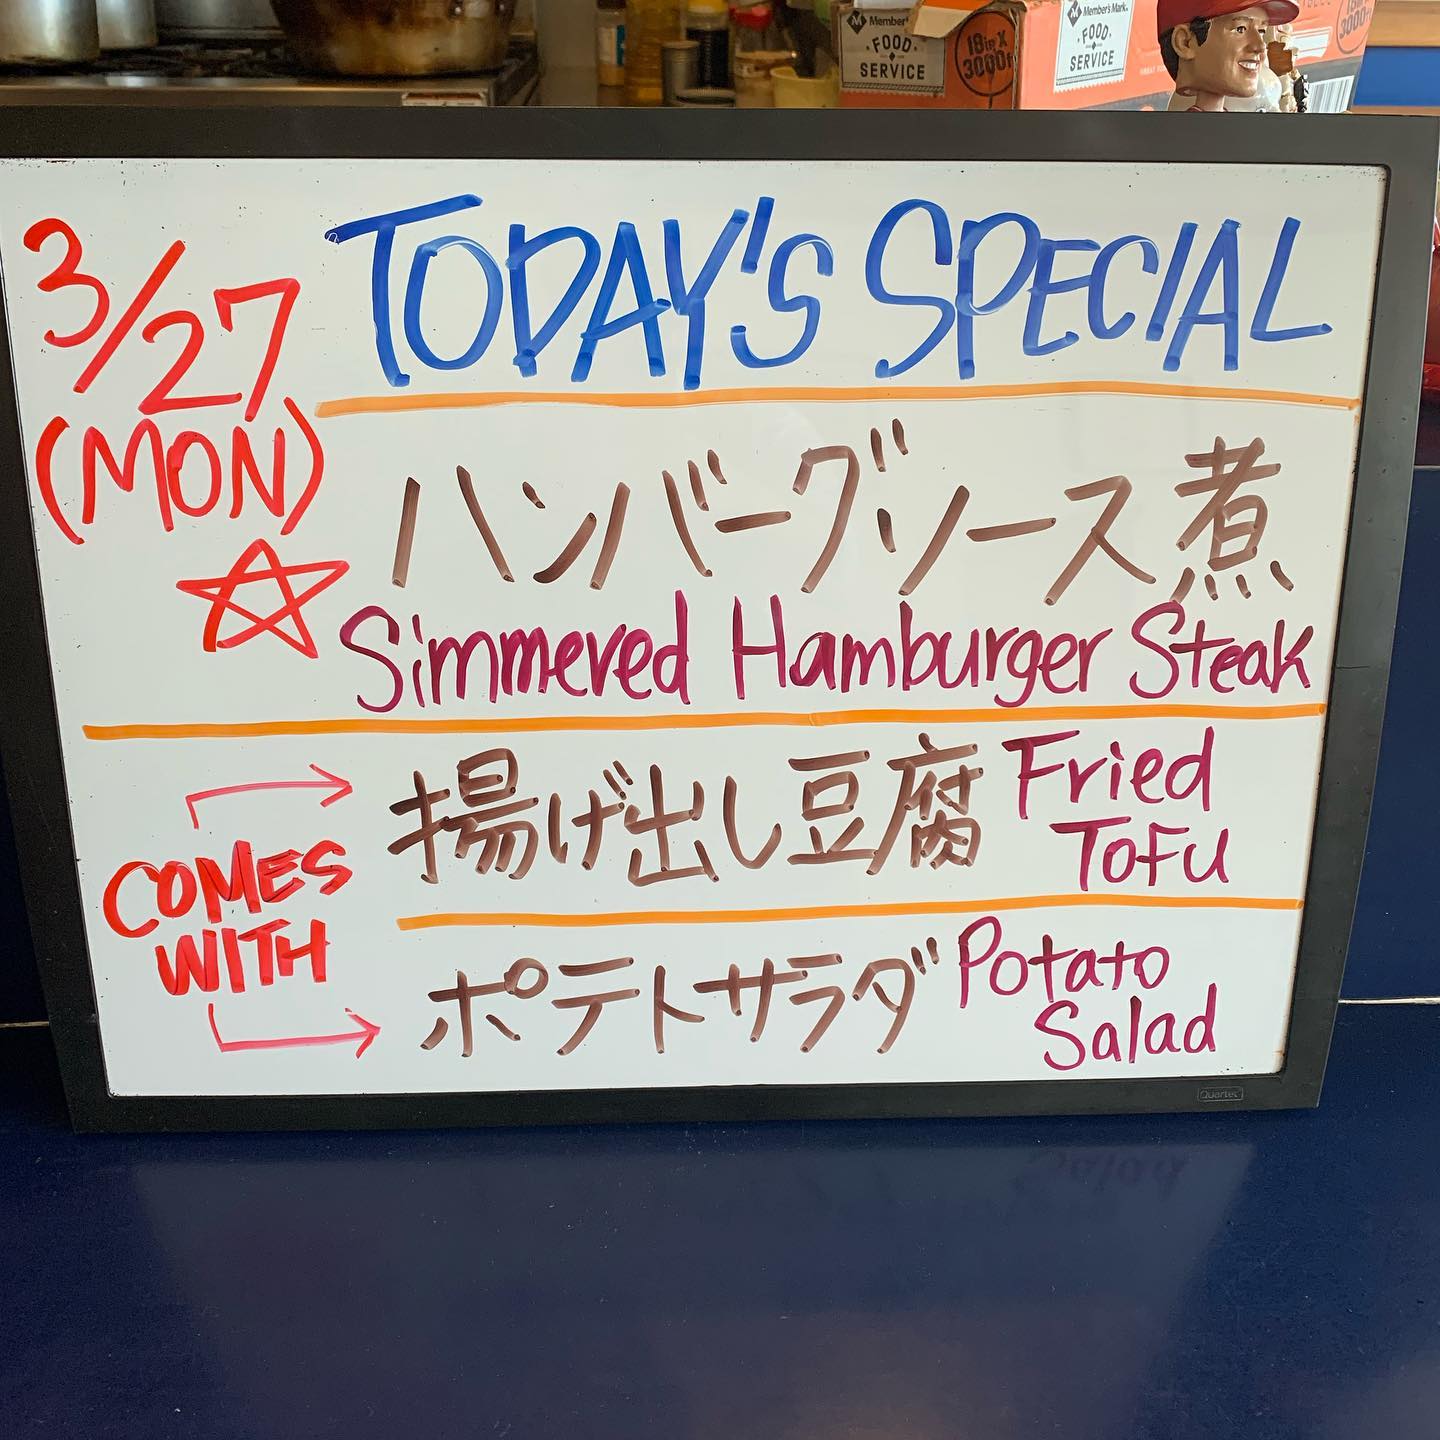 Member's Mark
FOOD
SERVICE
18in X
3000ft
Member's Mark.
FOOD
SERVICE
3/27
(MON)
TODAY'S SPECIAL
ハンバーグソース煮
Simmered Hamburger Steak
COMES
WITH
揚げ出し豆腐
Fried
TOFU
ポテトサラダ
Potato
Salad
Quartet